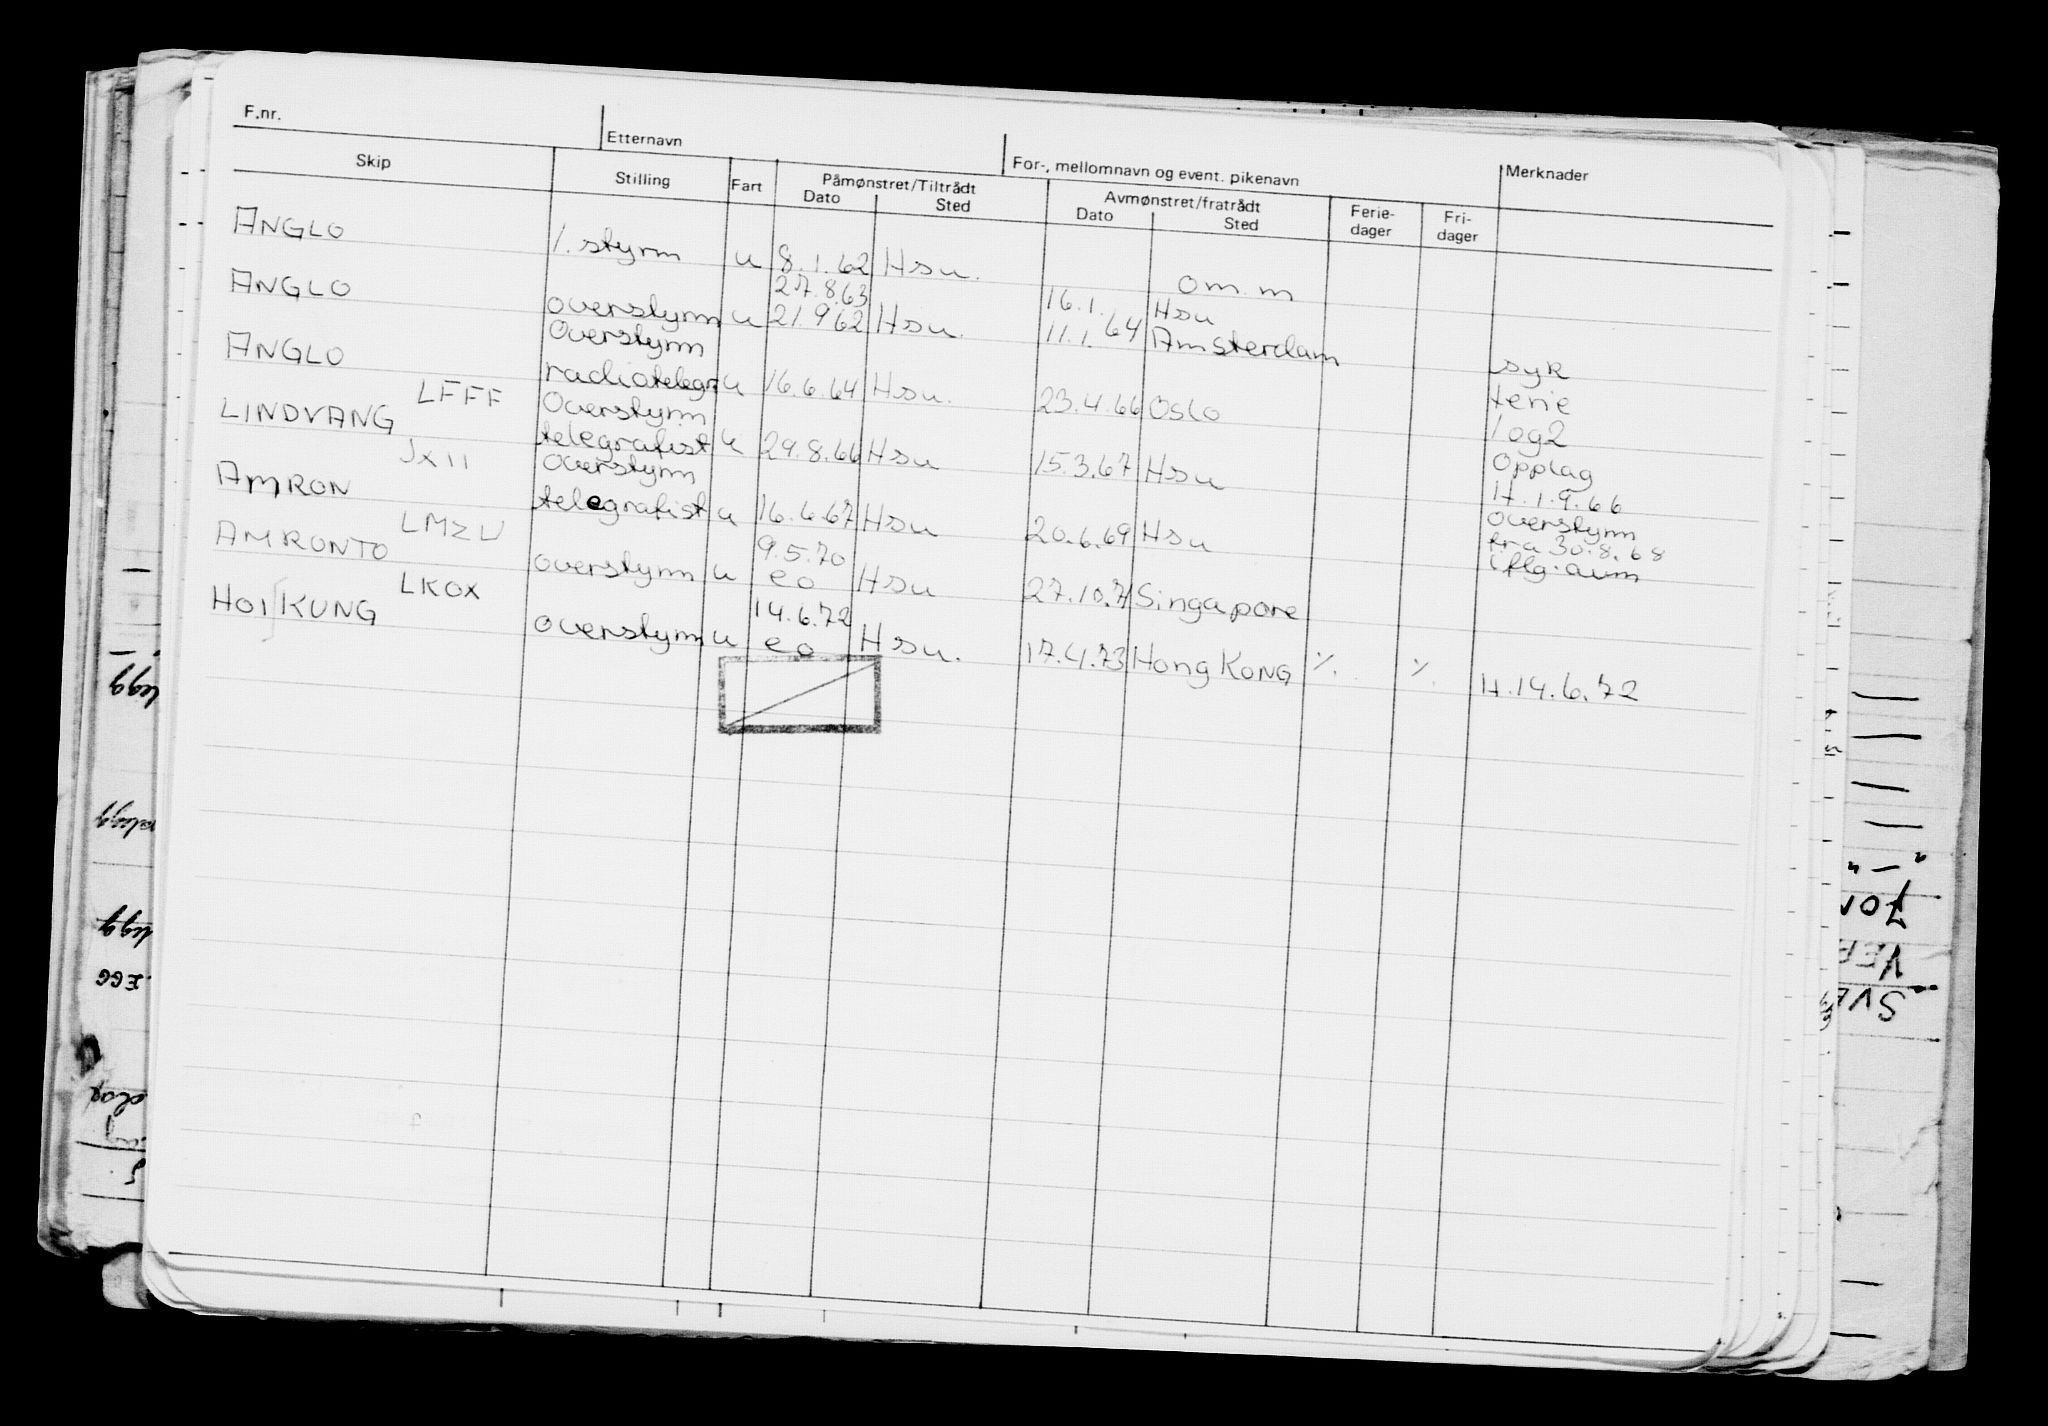 F.nr. Etternavn For-, mellomnavn og event. pikenavn Merknader
Skip Stilling Fart Påmønstret/Tiltrådt Avmønstret/fratrådt Ferie-dager Fri-dager
Dato Sted Dato Sted
ANGLO 1. styrm u 8.1.62 Hsu. om.m
27.8.63 16.1. Hsu
ANGLO overstyrm u 21.9.62 Hsu. 11.1.64 Amsterdam syk
Overstyrm
ANGLO radiotelegr u 16.6.64 Hsu. 23.4.66 Oslo ferie
LFFF Overstyrm 1 og 2
LINDVANG telegrafist u 29.8.66 Hsu 15.3.67 Hsu opplag
JXII Overstyrm H.1.9.66
AMRON telegrafist u 16.6.67 Hsu 20.6.69 Hsu overstyrm
LMZU 9.5.70 fra 30.8.68
AMRONTO overstyrm u eo Hsu 27.10.71 Singapore iflg. avm
LKOX 14.6.72
HOI KUNG overstyrm u eo Hsu. 17.4.73 Hong Kong ./. ./. H.14.6.72